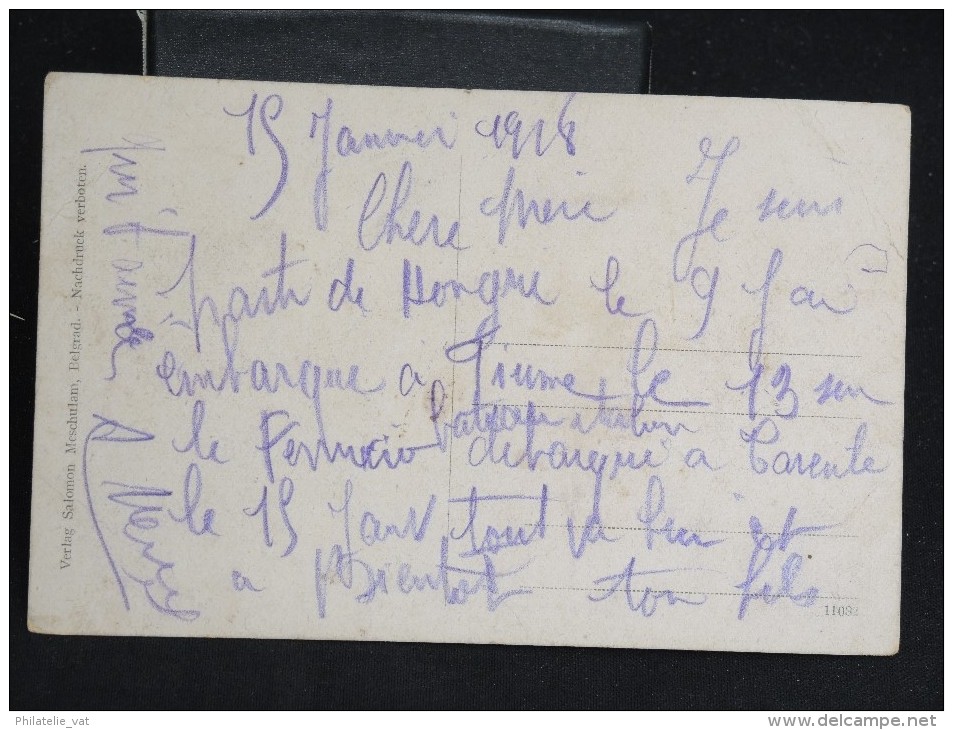 15 Janvier 1918
Chere Mere Je suis
parti de Hongrie le 9 J ai
embarque a Fiume le 13 sur
bateau italien
le Ferrucio debarque a Tarente
le 15 Janv tout va bien et
a Bientot ton fils
qui t
Verlag Salomon Meschulam, Belgrad. - Nachdruck verboten.
11082
Philatelie_vat
www.delcampe.net